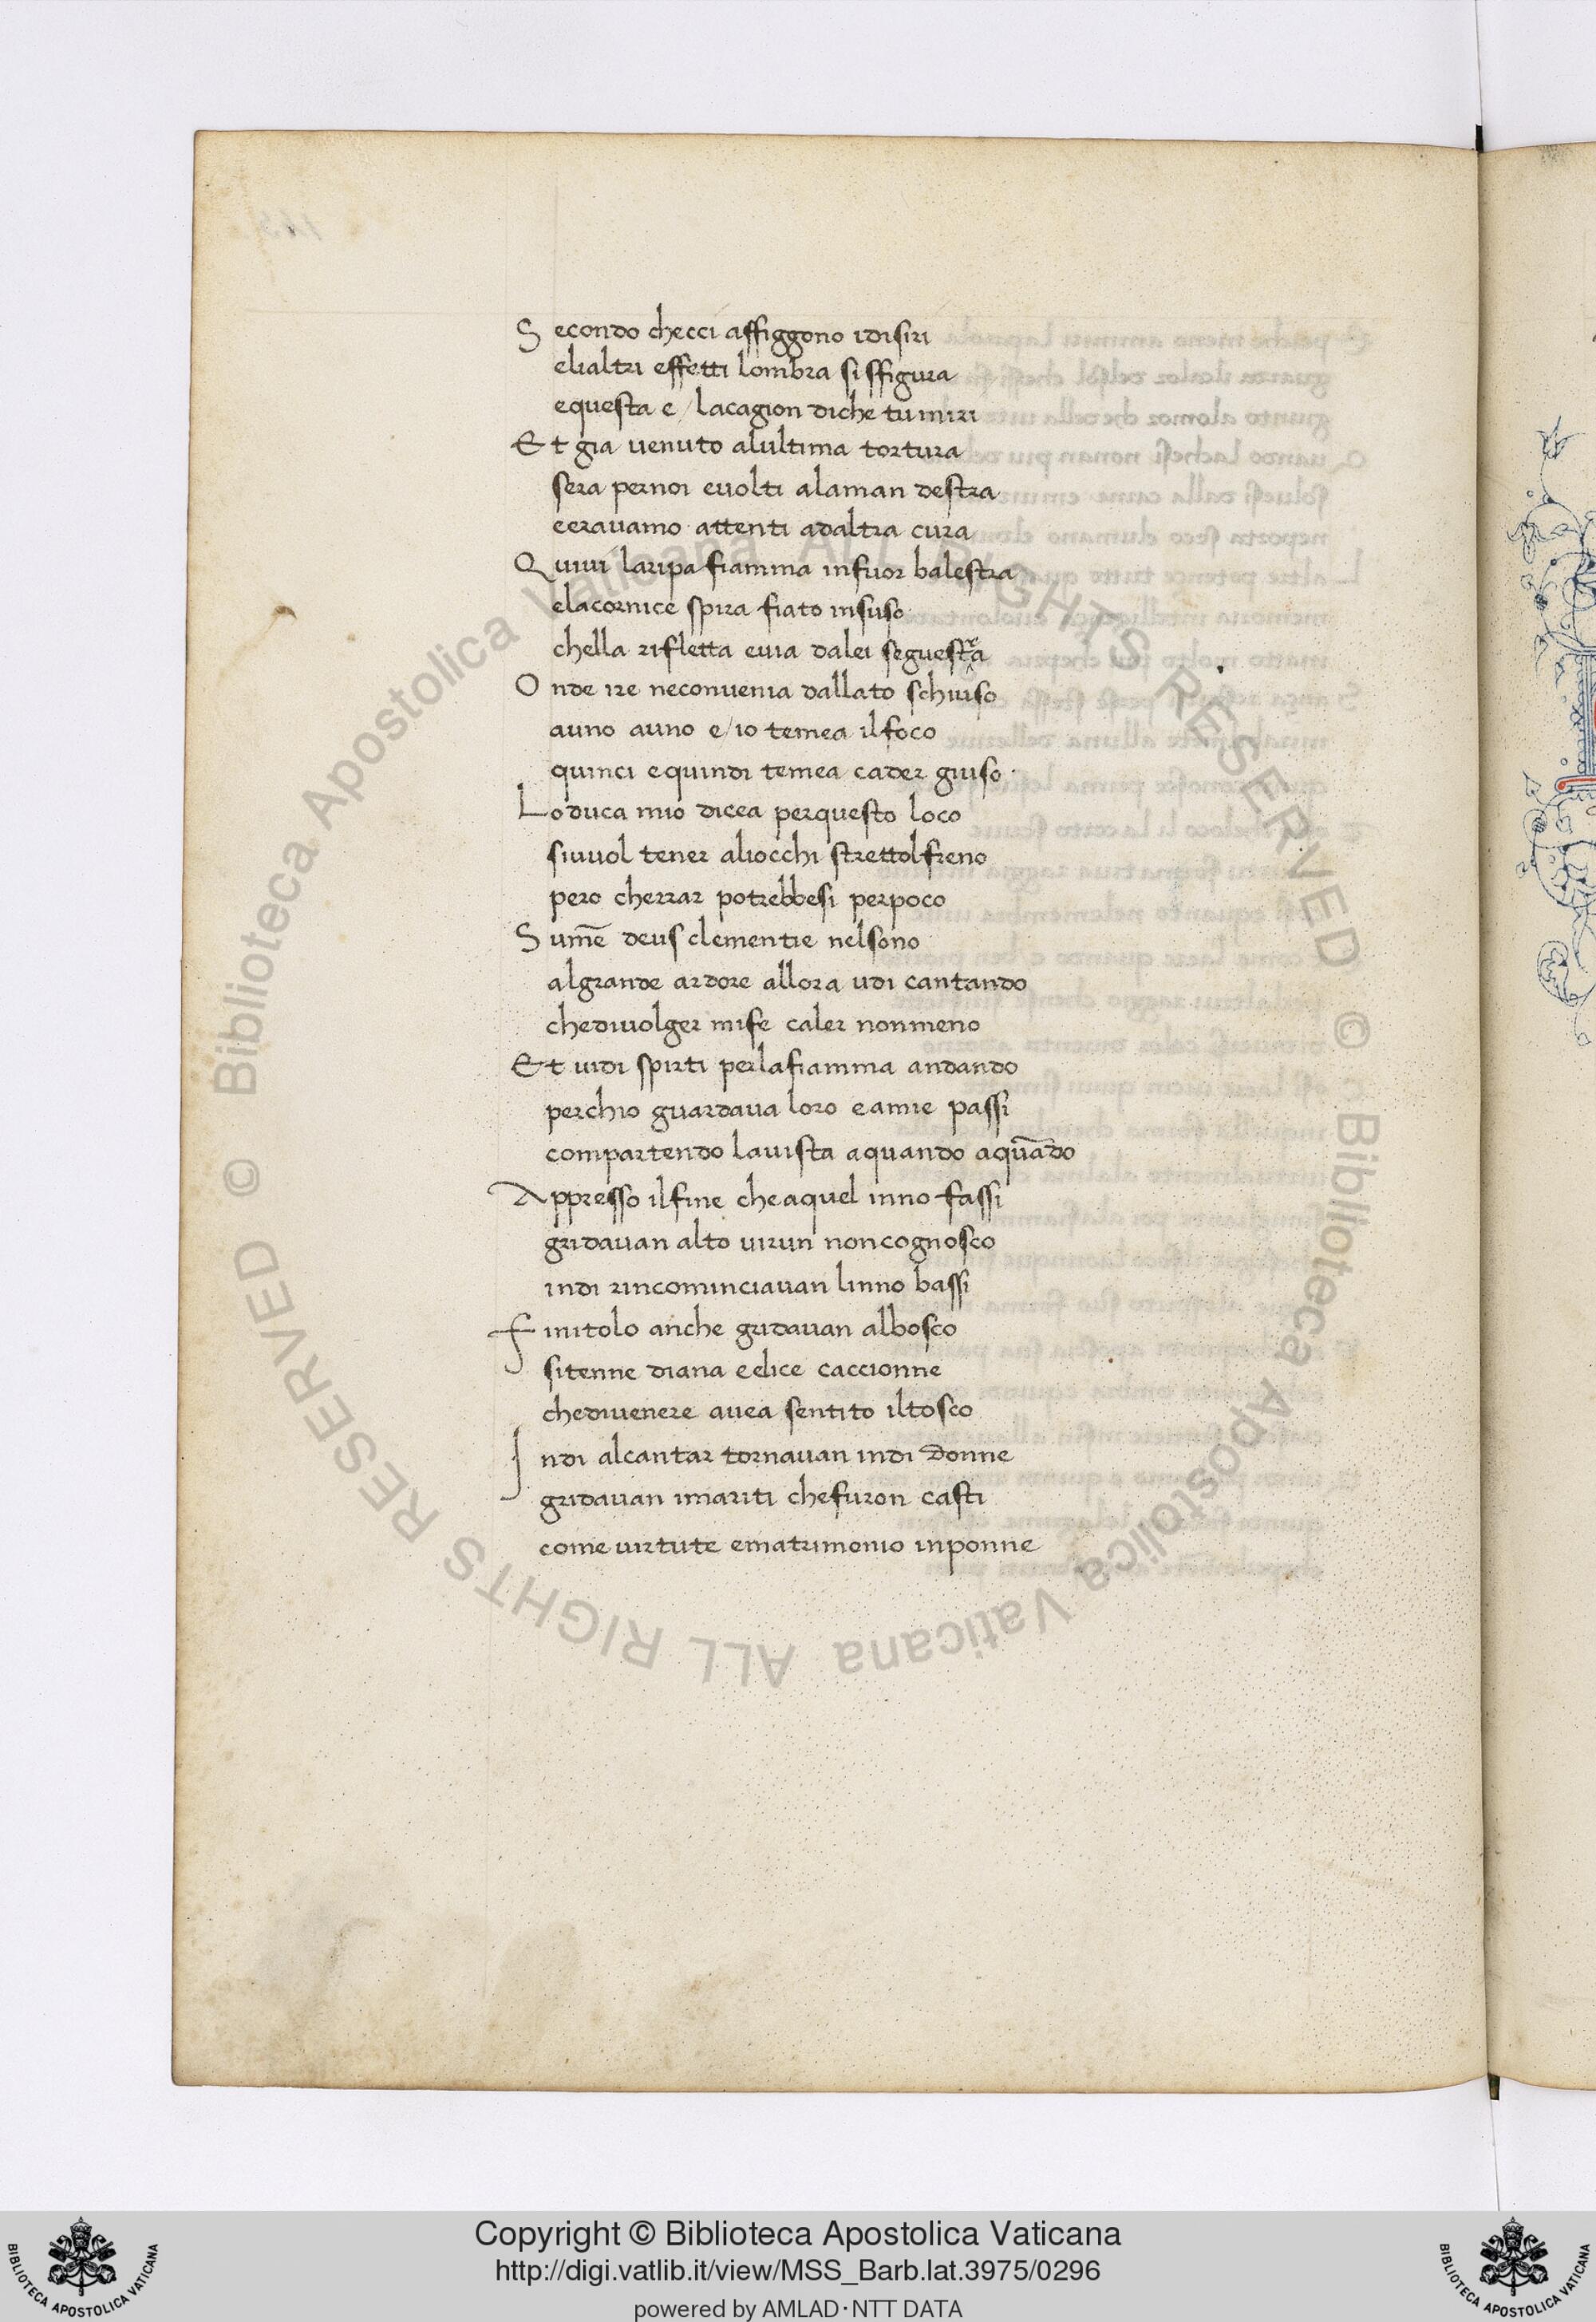 Secondo checci affiggono idisiri
elialtri effetti lombra si sfigura
equesta e / lacagion diche tu miri
Et gia uenuto alultima tortura
sera pernoi euolti alaman destra
eerauamo attenti adaltra cura
Quiui laripa fiamma infuor balestra
elacornice spira fiato insuso
chella rifletta euia dalei seguestra
Onde ire neconuenia dallato schiuso
auno auno e/io temea ilfoco
quinci equindi temea cader giuso
Loduca mio dicea perquesto loco
siuuol tener aliocchi strettolfreno
pero cherrar potrebbesi perpoco
Summē deus clementie nelseno
algrande ardore allora udi cantando
chediuolger mife caler nonmeno
Et uidi spirti perlafiamma andando
perchio guardaua loro eamie passi
compartendo lauista aquando aquādo
Appresso ilfine cheaquel inno fassi
gridauan alto uirun noncognosco
indi rincominciauan linno bassi
finitolo anche gridauan albosco
sitenne diana eelice caccionne
chediuenere auea sentito iltosco
Indi alcantar tornauan indi donne
gridauan imariti chefuron casti
come uirtute ematrimonio inponne
© Biblioteca Apostolica Vaticana ALL RIGHTS RESERVED © Biblioteca Apostolica Vaticana ALL RIGHTS RESERVED
BIBLIOTECA APOSTOLICA VATICANA
Copyright © Biblioteca Apostolica Vaticana
http://digi.vatlib.it/view/MSS_Barb.lat.3975/0296
powered by AMLAD・NTT DATA
BIBLIOTECA APOSTOLICA VATICANA